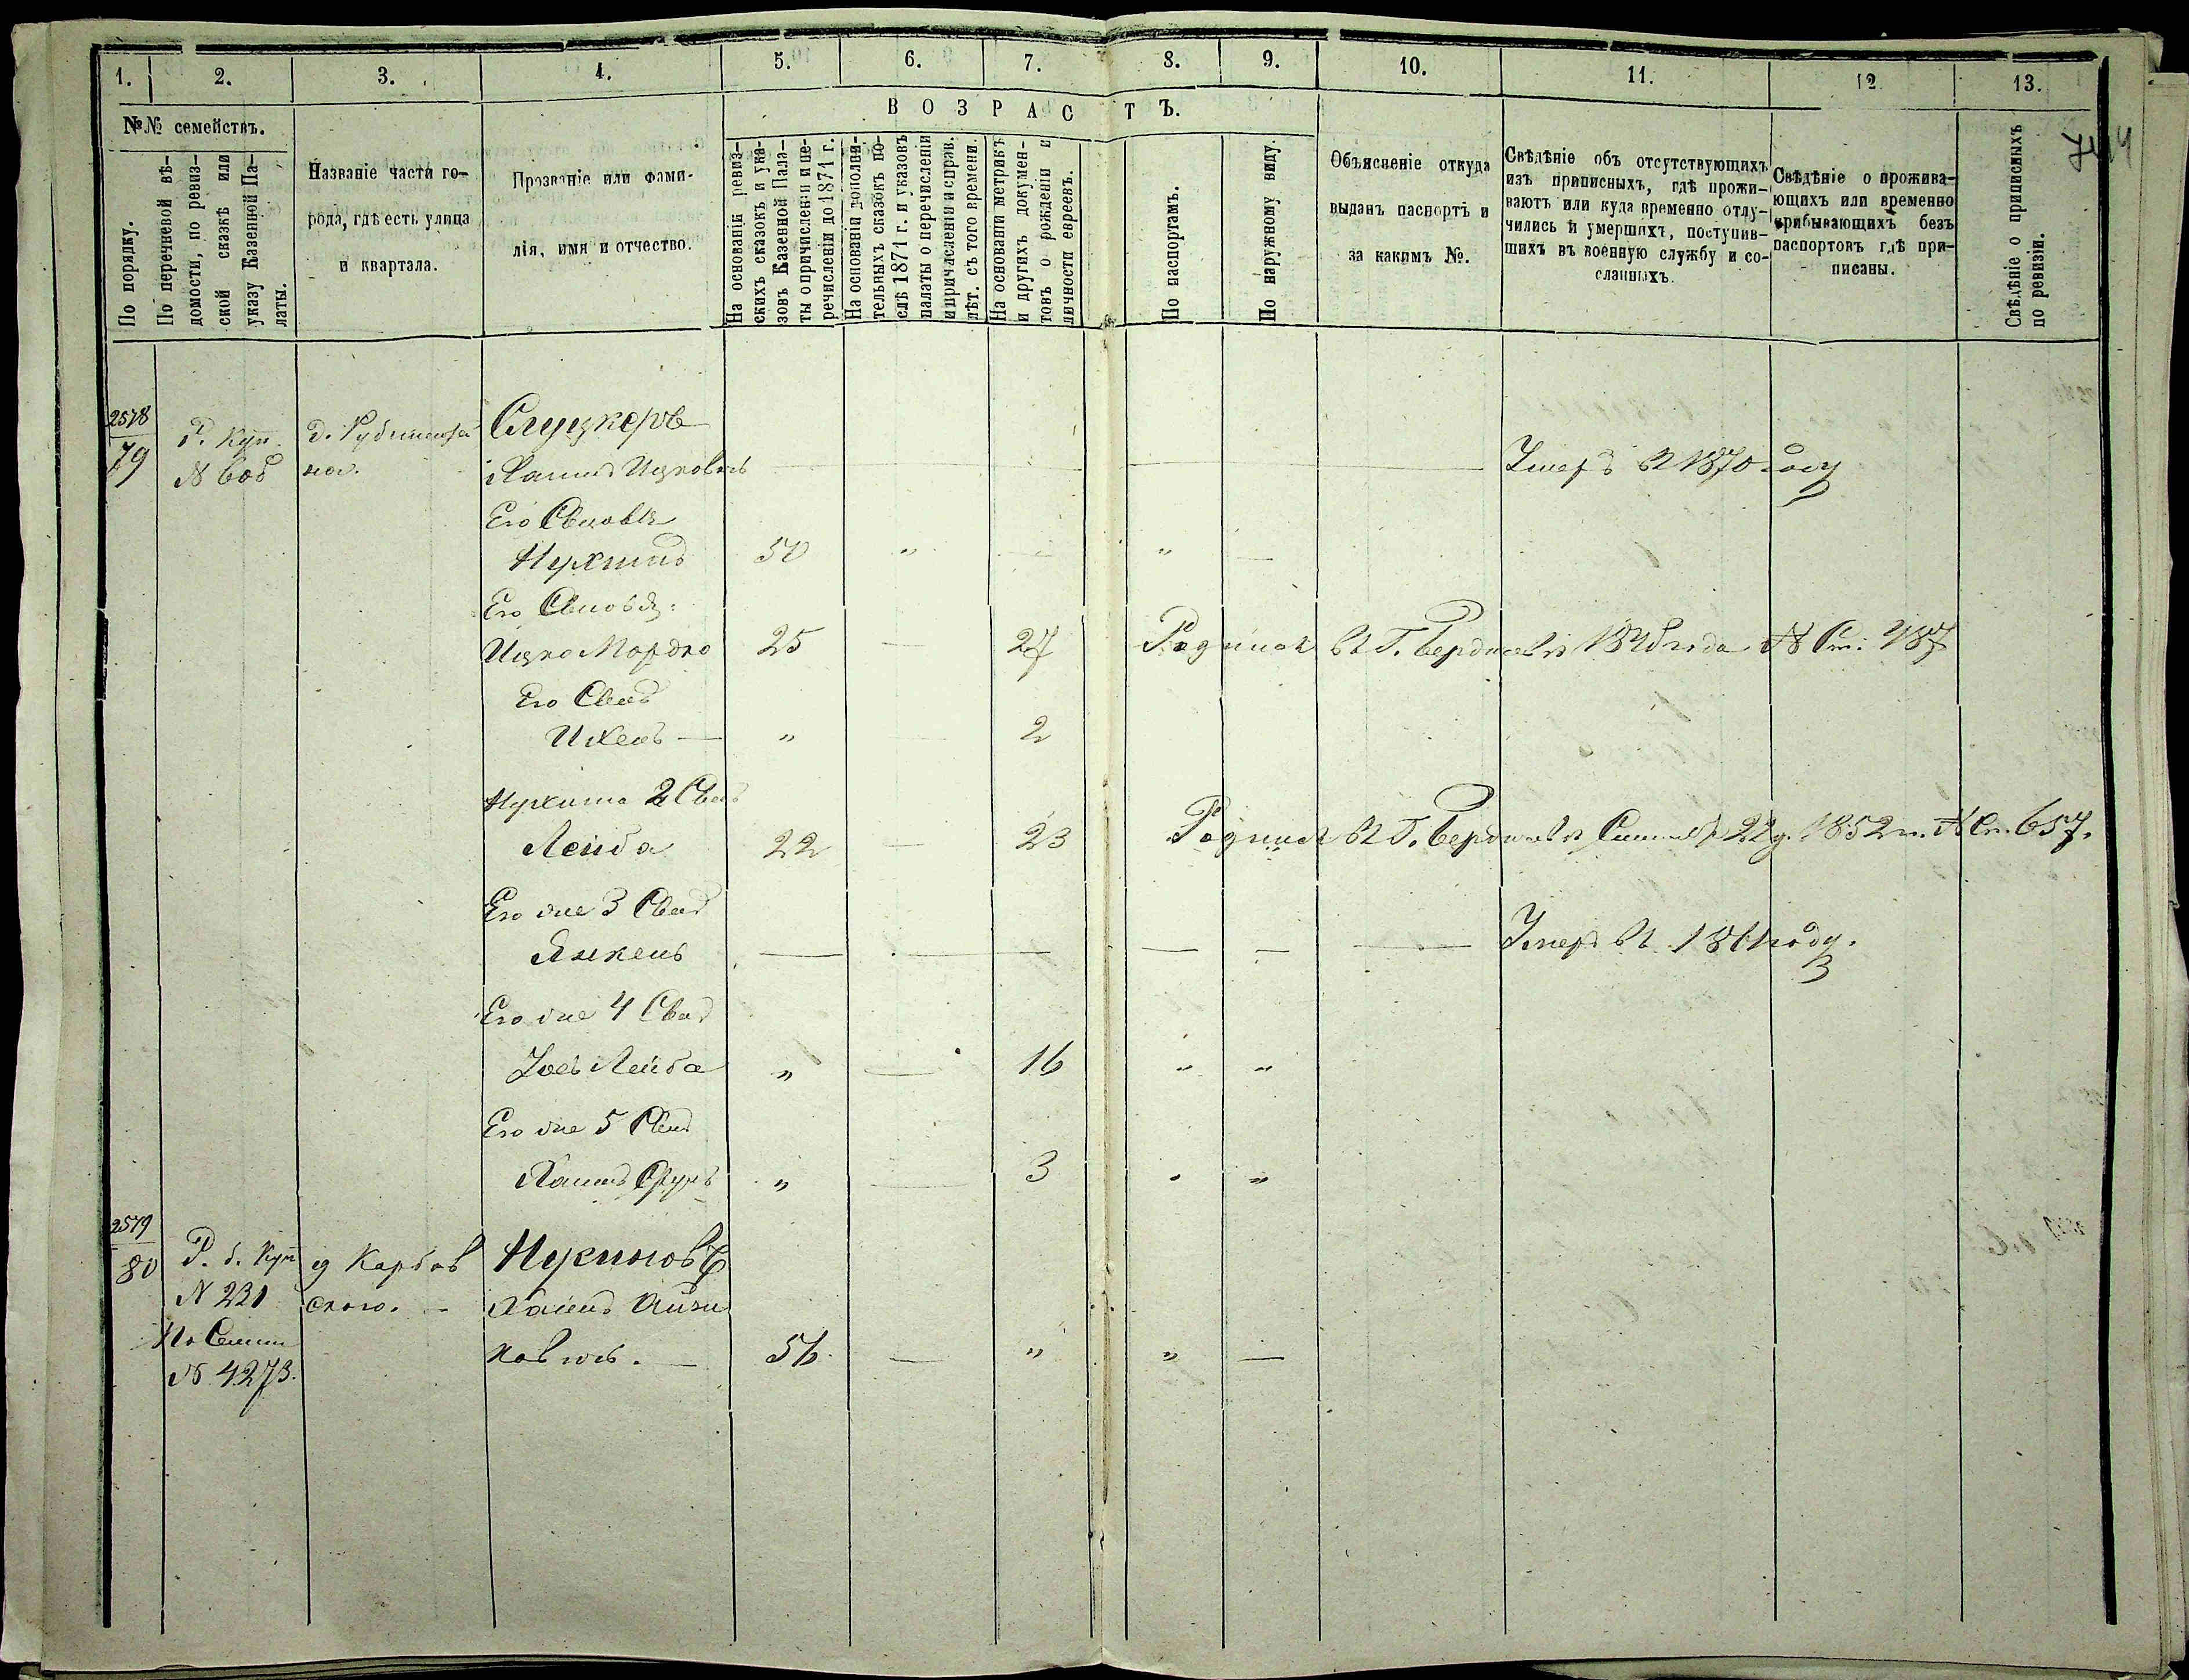 1. 2. 3. 4. 5. 6. 7. 8. 9. 10. 11. 12 13.
№№ семействъ.
По порядку.
По перечневой вѣ-
домости, по ревиз-
ской сказкѣ или
указу Казенной Па-
латы.
Названіе части го-
рода, гдѣ есть улица
и квартала.
Прозваніе или фами-
лія, имя и отчество.
ВОЗРАСТЪ.
На основаніи ревиз-
скихъ сказокъ и ука-
зовъ Казенной Пала-
ты о причисленіи и пе-
речисленіи до 1871 г.
На основаніи дополни-
тельныхъ сказокъ по-
слѣ 1871 г. и указовъ
палаты о перечисленіи
и причисленіи и справ.
лѣт. съ того времени.
На основаніи метрикъ
и другихъ докумен-
товъ о рожденіи и
личности евреевъ.
По паспортамъ.
По наружному виду.
Объясненіе откуда
выданъ паспортъ и
за какимъ №.
Свѣдѣніе объ отсутствующихъ
изъ приписныхъ, гдѣ прожи-
ваютъ или куда временно отлу-
чились и умершихъ, поступив-
шихъ въ военную службу и со-
сланныхъ.
Свѣдѣніе о прожива-
ющихъ или временно
прибывающихъ безъ
паспортовъ гдѣ при-
писаны.
Свѣдѣніе о приписныхъ
по ревизіи.
2578
79
Р. Куп.
N 608
Слуцкеръ
Хаимъ Ицковичъ — Умеръ въ 1870 году
Его Сыновья
Нухимъ 50 " — " —
Его Сыновья:
Ицко Мордко 25 — 27 Родился въ Г. Бердичевѣ года N Ст. 187
Его Сынъ
Ихель — " — 2
Нухима 2 Сынъ
Лейба 22 — 23 Родился въ Г. Бердичевѣ 22 д. 1852 г. N Ст. 657.
Его же 3 Сынъ
Янкель — — — — — — Умеръ въ 1861 году.
Его же 4 Сынъ
Лейба " — 16 " "
Его же 5 Сынъ
Хаимъ " — 3 " "
2579
80
Р. б. Куп
N 231
N 4273.
д Карбов
ского. —
Нухимовъ
Хаимъ Айзи
ковичъ. — 56. — " " —